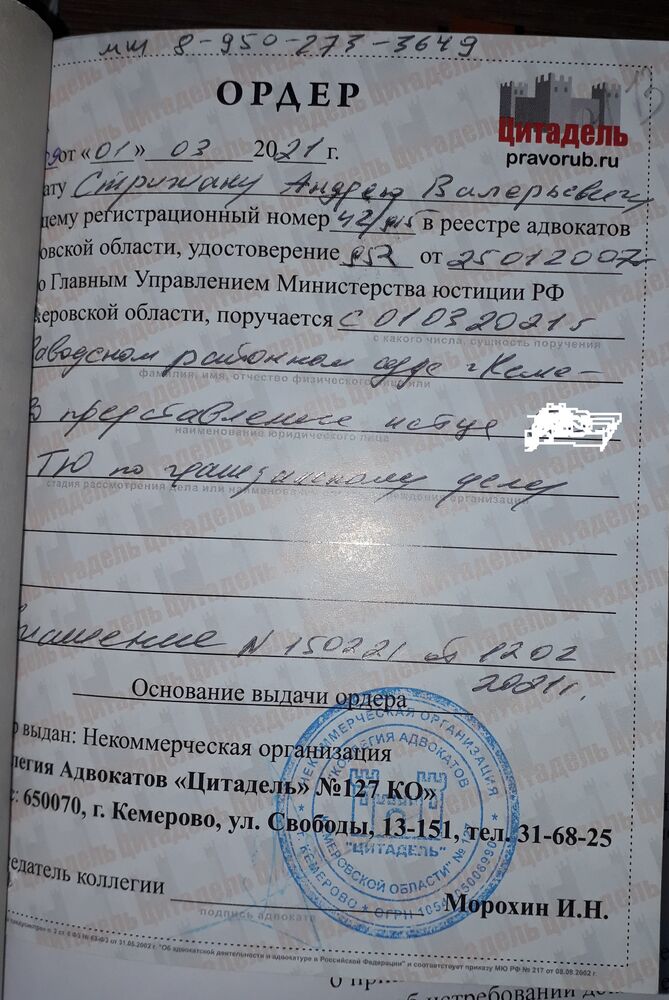 мш 8-950-273-3649
ОРДЕР
Цитадель
pravorub.ru
от «01» 03 2021 г.
ату Стрижаку Андрею Валерьевичу
щему регистрационный номер 42/ в реестре адвокатов
овской области, удостоверение 952 от 25012007г
о Главным Управлением Министерства юстиции РФ
керовской области, поручается с 01032021г
с какого числа, сущность поручения
Заводском районном суде г Кеме-
фамилия, имя, отчество физического или
в представление истца
наименование юридического лица
ТЮ по гражданскому делу
стадия рассмотрения дела или наименование организации
глашение N 150221 от 1202
2021г.
Основание выдачи ордера
р выдан: Некоммерческая организация
легия Адвокатов «Цитадель» №127 КО»
с: 650070, г. Кемерово, ул. Свободы, 13-151, тел. 31-68-25
НЕКОММЕРЧЕСКАЯ ОРГАНИЗАЦИЯ
"КОЛЛЕГИЯ АДВОКАТОВ
"ЦИТАДЕЛЬ"
КЕМЕРОВСКОЙ ОБЛАСТИ" № 127
г. КЕМЕРОВО * ОГРН
седатель коллегии Морохин И.Н.
подпись адвоката
"Об адвокатской деятельности и адвокатуре в Российской Федерации" и соответствует приказу МЮ РФ № 217 от 08.08.2002 г.
О при
об истребовании